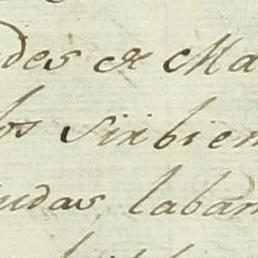 des de Ma
los sirbien
udas, laban